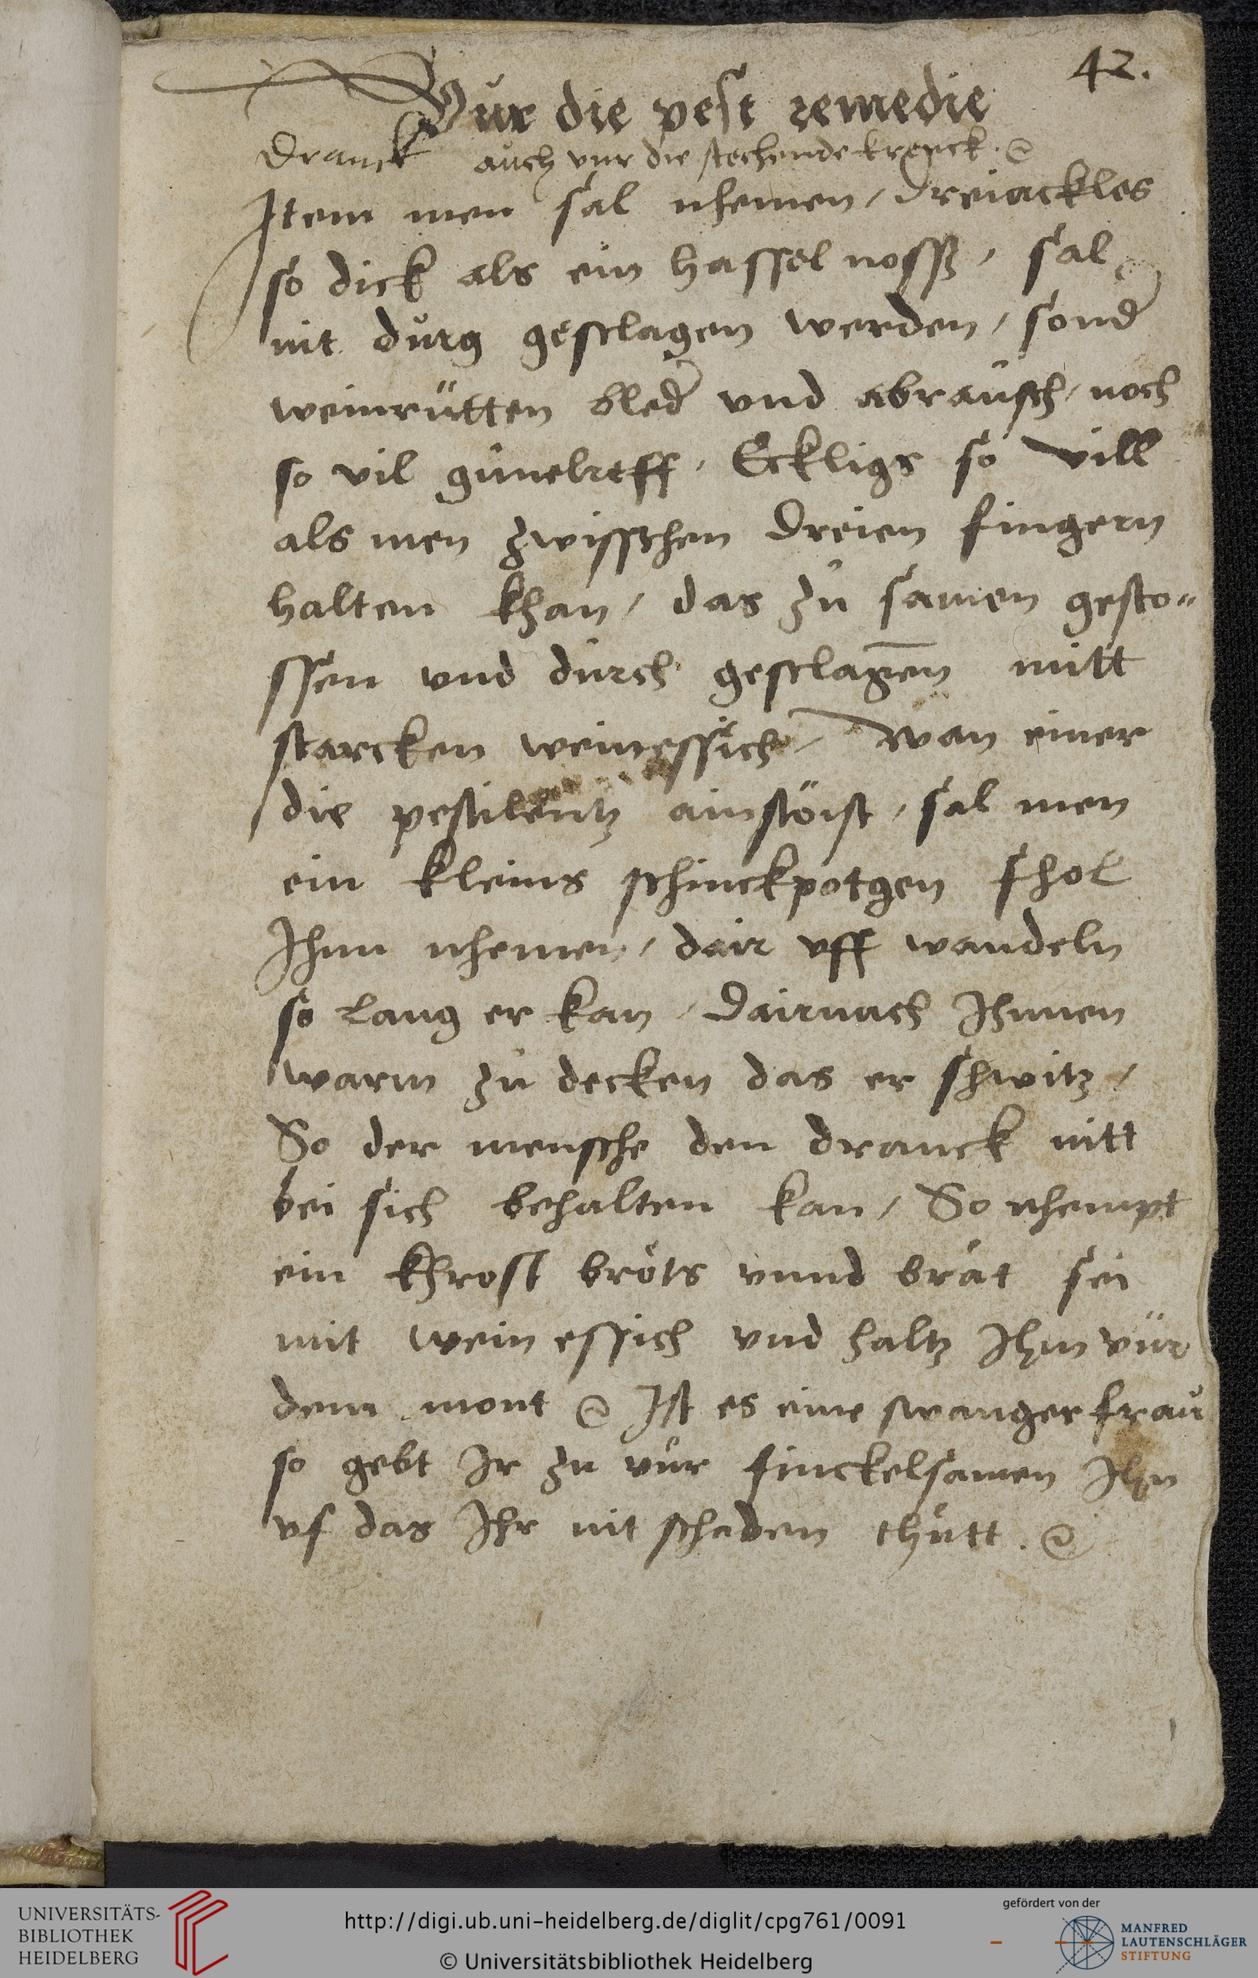 42.
Vur die pest remedie
Dranck auch vur die stechende kranck
Item men sal nhemen / Dreiackles
so dick als ein hassel nossz / sal
nit durg gesclagen werden / sonder
weinrütten bleder vnd abrausch / noch
so vil gunelreff / Eckligs so vill
als men zwisschen dreien fingern
halten khan / das zu samen gesto"
ssen vnd durch gesclagen mitt
starcken weinessich / Wan einer
die pestilentz ainstöist / sal men
ein kleins schinckpotgen shol
Ihnn nhemen / dair vff wandeln
so lang er kan / Dairnach Ihnnen
warm zu decken das er shwitz /
So der mensche den dranck nitt
bei sich behalten kan / So nhempt
ein khrost bröts vnnd brät sei
mit wein essich vnd haltz Ihm vür
dem mont Ist es eine swanger frau
so gebt Ir zu vur finckelsamen Ihn
vf das Ihr nit schaden thutt .
UNIVERSITÄTS-
BIBLIOTHEK
HEIDELBERG
http://digi.ub.uni-heidelberg.de/diglit/cpg761/0091
© Universitätsbibliothek Heidelberg
gefördert von der
MANFRED
LAUTENSCHLÄGER
STIFTUNG